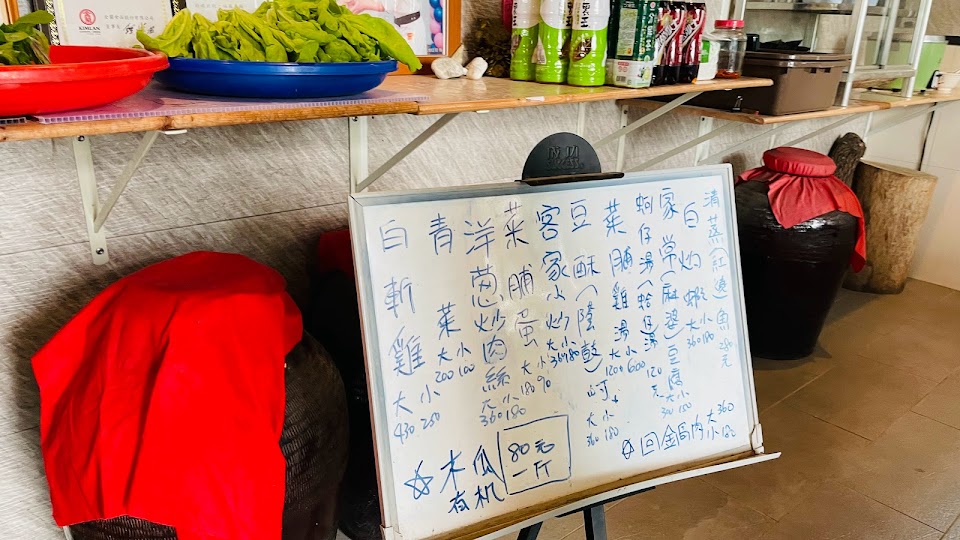 KIMLAN
清蒸(紅邊)魚
280元
白灼蝦
大 小
360 180
家常(麻婆)豆腐
大 小
蚵仔湯(蛤仔)湯
120元
菜脯雞湯
大 小
1200 600
豆酥(
大 小
360 180
客家小炒
大 小
360 180
菜脯蛋
大 小
180 90
洋蔥炒肉絲
大 小
360 180
青菜
大 小
200 100
白斬雞
大 小
430 250
☆回金
肉 大360
小180
☆木瓜
有機
80元
一斤